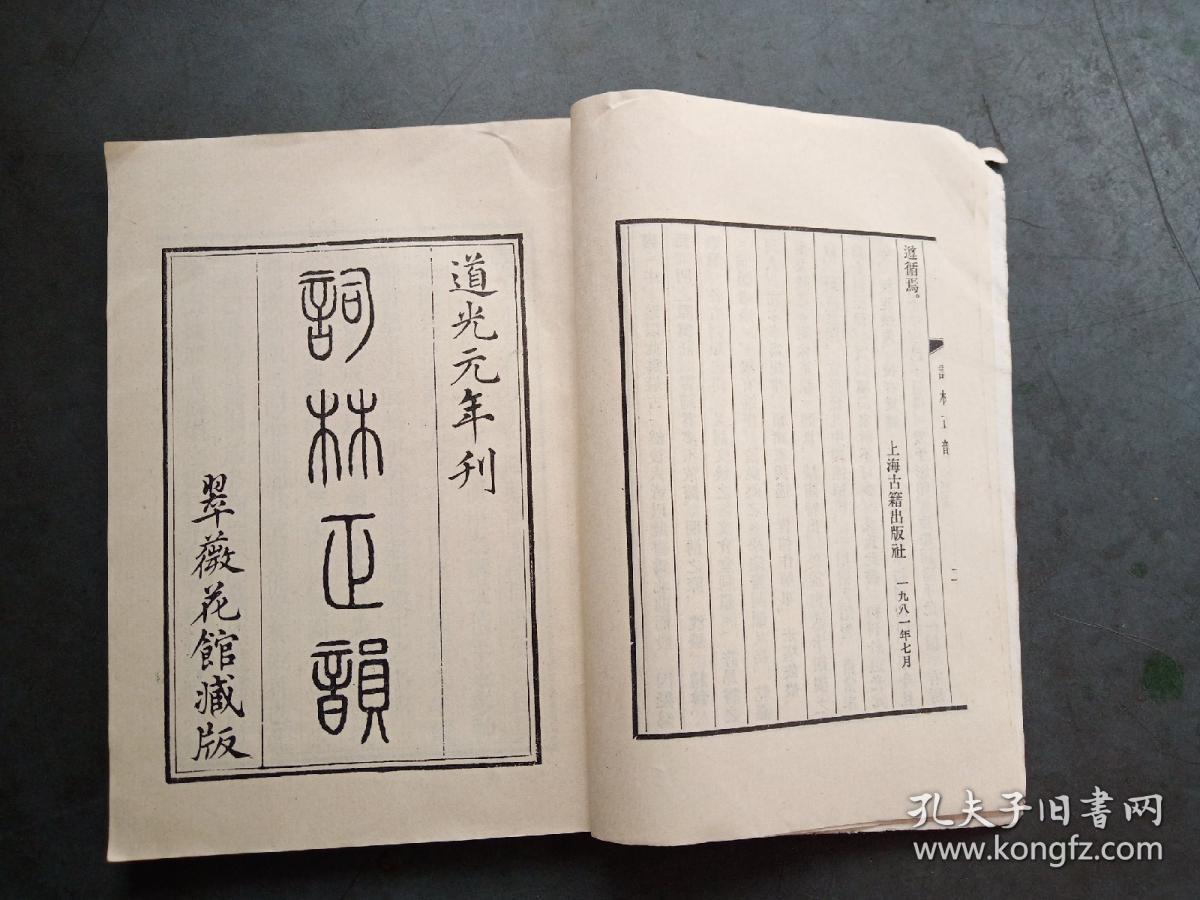 遵循焉。
上海古籍出版社 一九八一年七月
詞林正韻
二
道光元年刊
詞林正韻
翠薇花館藏版
孔夫子旧书网
www.kongfz.com